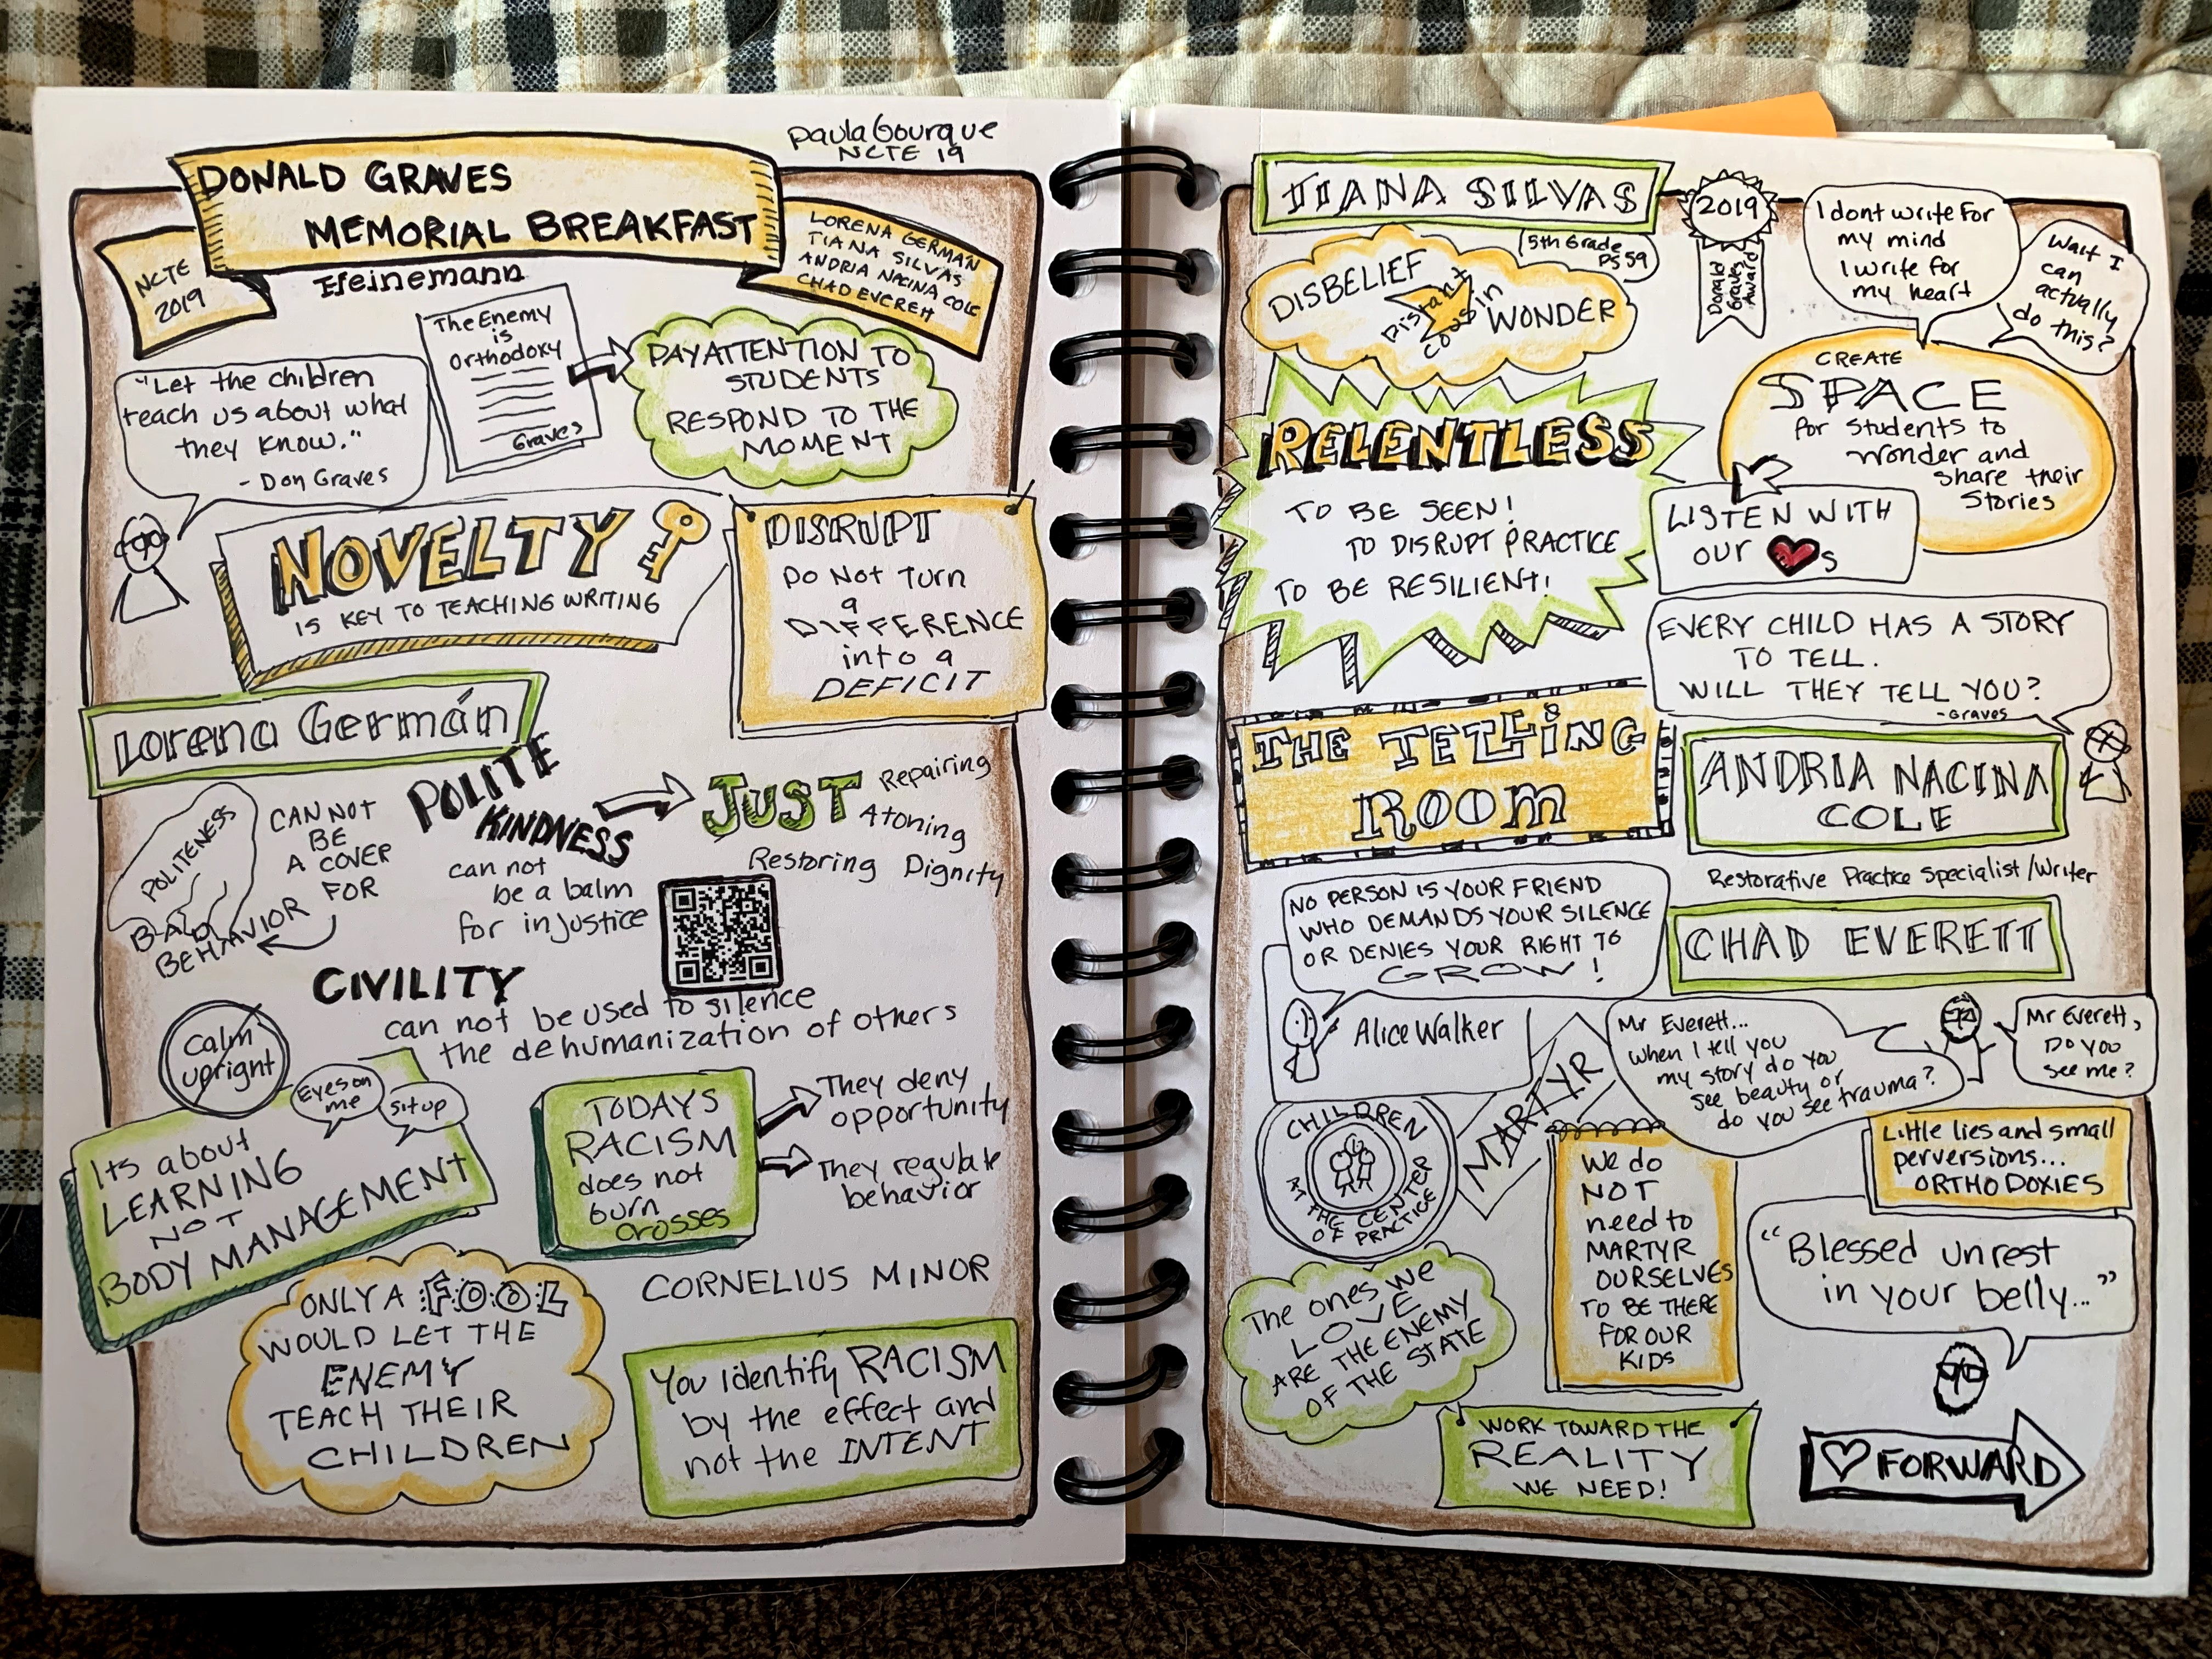 Paula Gourque
NCTE 19
DONALD GRAVES
MEMORIAL BREAKFAST
NCTE
2019
Heinemann
LORENA GERMAN
TIANA SILVAS
ANDRIA NACINA COLE
CHAD EVERETT
"Let the children
teach us about what
they know."
- Don Graves
The Enemy
is
Orthodoxy
Graves
PAY ATTENTION TO
STUDENTS
RESPOND TO THE
MOMENT
NOVELTY
IS KEY TO TEACHING WRITING
DISRUPT
DO NOT TURN
a
DIFFERENCE
into a
DEFICIT
Lorena Germán
POLITENESS
CAN NOT
BE
A COVER
FOR
BAD
BEHAVIOR
POLITE
KINDNESS
can not
be a balm
for injustice
JUST
Repairing
Atoning
Restoring Dignity
CIVILITY
can not be used to silence
the dehumanization of others
Calm
upright
Eyes on
me
Sit up
Its about
LEARNING
NOT
BODY MANAGEMENT
TODAYS
RACISM
does not
burn
crosses
They deny
opportunity
They regulate
behavior
CORNELIUS MINOR
ONLY A FOOL
WOULD LET THE
ENEMY
TEACH THEIR
CHILDREN
You identify RACISM
by the effect and
not the INTENT
TIANA SILVAS
5th Grade
PS 59
2019
Donald
Graves
Award
I dont write for
my mind
I write for
my heart
Wait I
can
actually
do this?
DISBELIEF
Distant
cousin
WONDER
CREATE
SPACE
for students to
wonder and
share their
stories
RELENTLESS
TO BE SEEN!
TO DISRUPT PRACTICE
TO BE RESILIENT!
LISTEN WITH
our ♥s
EVERY CHILD HAS A STORY
TO TELL.
WILL THEY TELL YOU?
-Graves
THE TELLING
ROOM
ANDRIA NACINA
COLE
Restorative Practice Specialist/Writer
NO PERSON IS YOUR FRIEND
WHO DEMANDS YOUR SILENCE
OR DENIES YOUR RIGHT TO
GROW!
Alice Walker
CHAD EVERETT
Mr Everett...
when I tell you
my story do you
see beauty or
do you see trauma?
Mr Everett,
DO YOU
see me?
CHILDREN
AT THE CENTER
OF PRACTICE
MARTYR
We do
NOT
need to
MARTYR
OURSELVES
TO BE THERE
FOR OUR
KIDS
Little lies and small
perversions...
ORTHODOXIES
"Blessed unrest
in your belly..."
The ones we
LOVE
ARE THE ENEMY
OF THE STATE
WORK TOWARD THE
REALITY
WE NEED!
♡ FORWARD